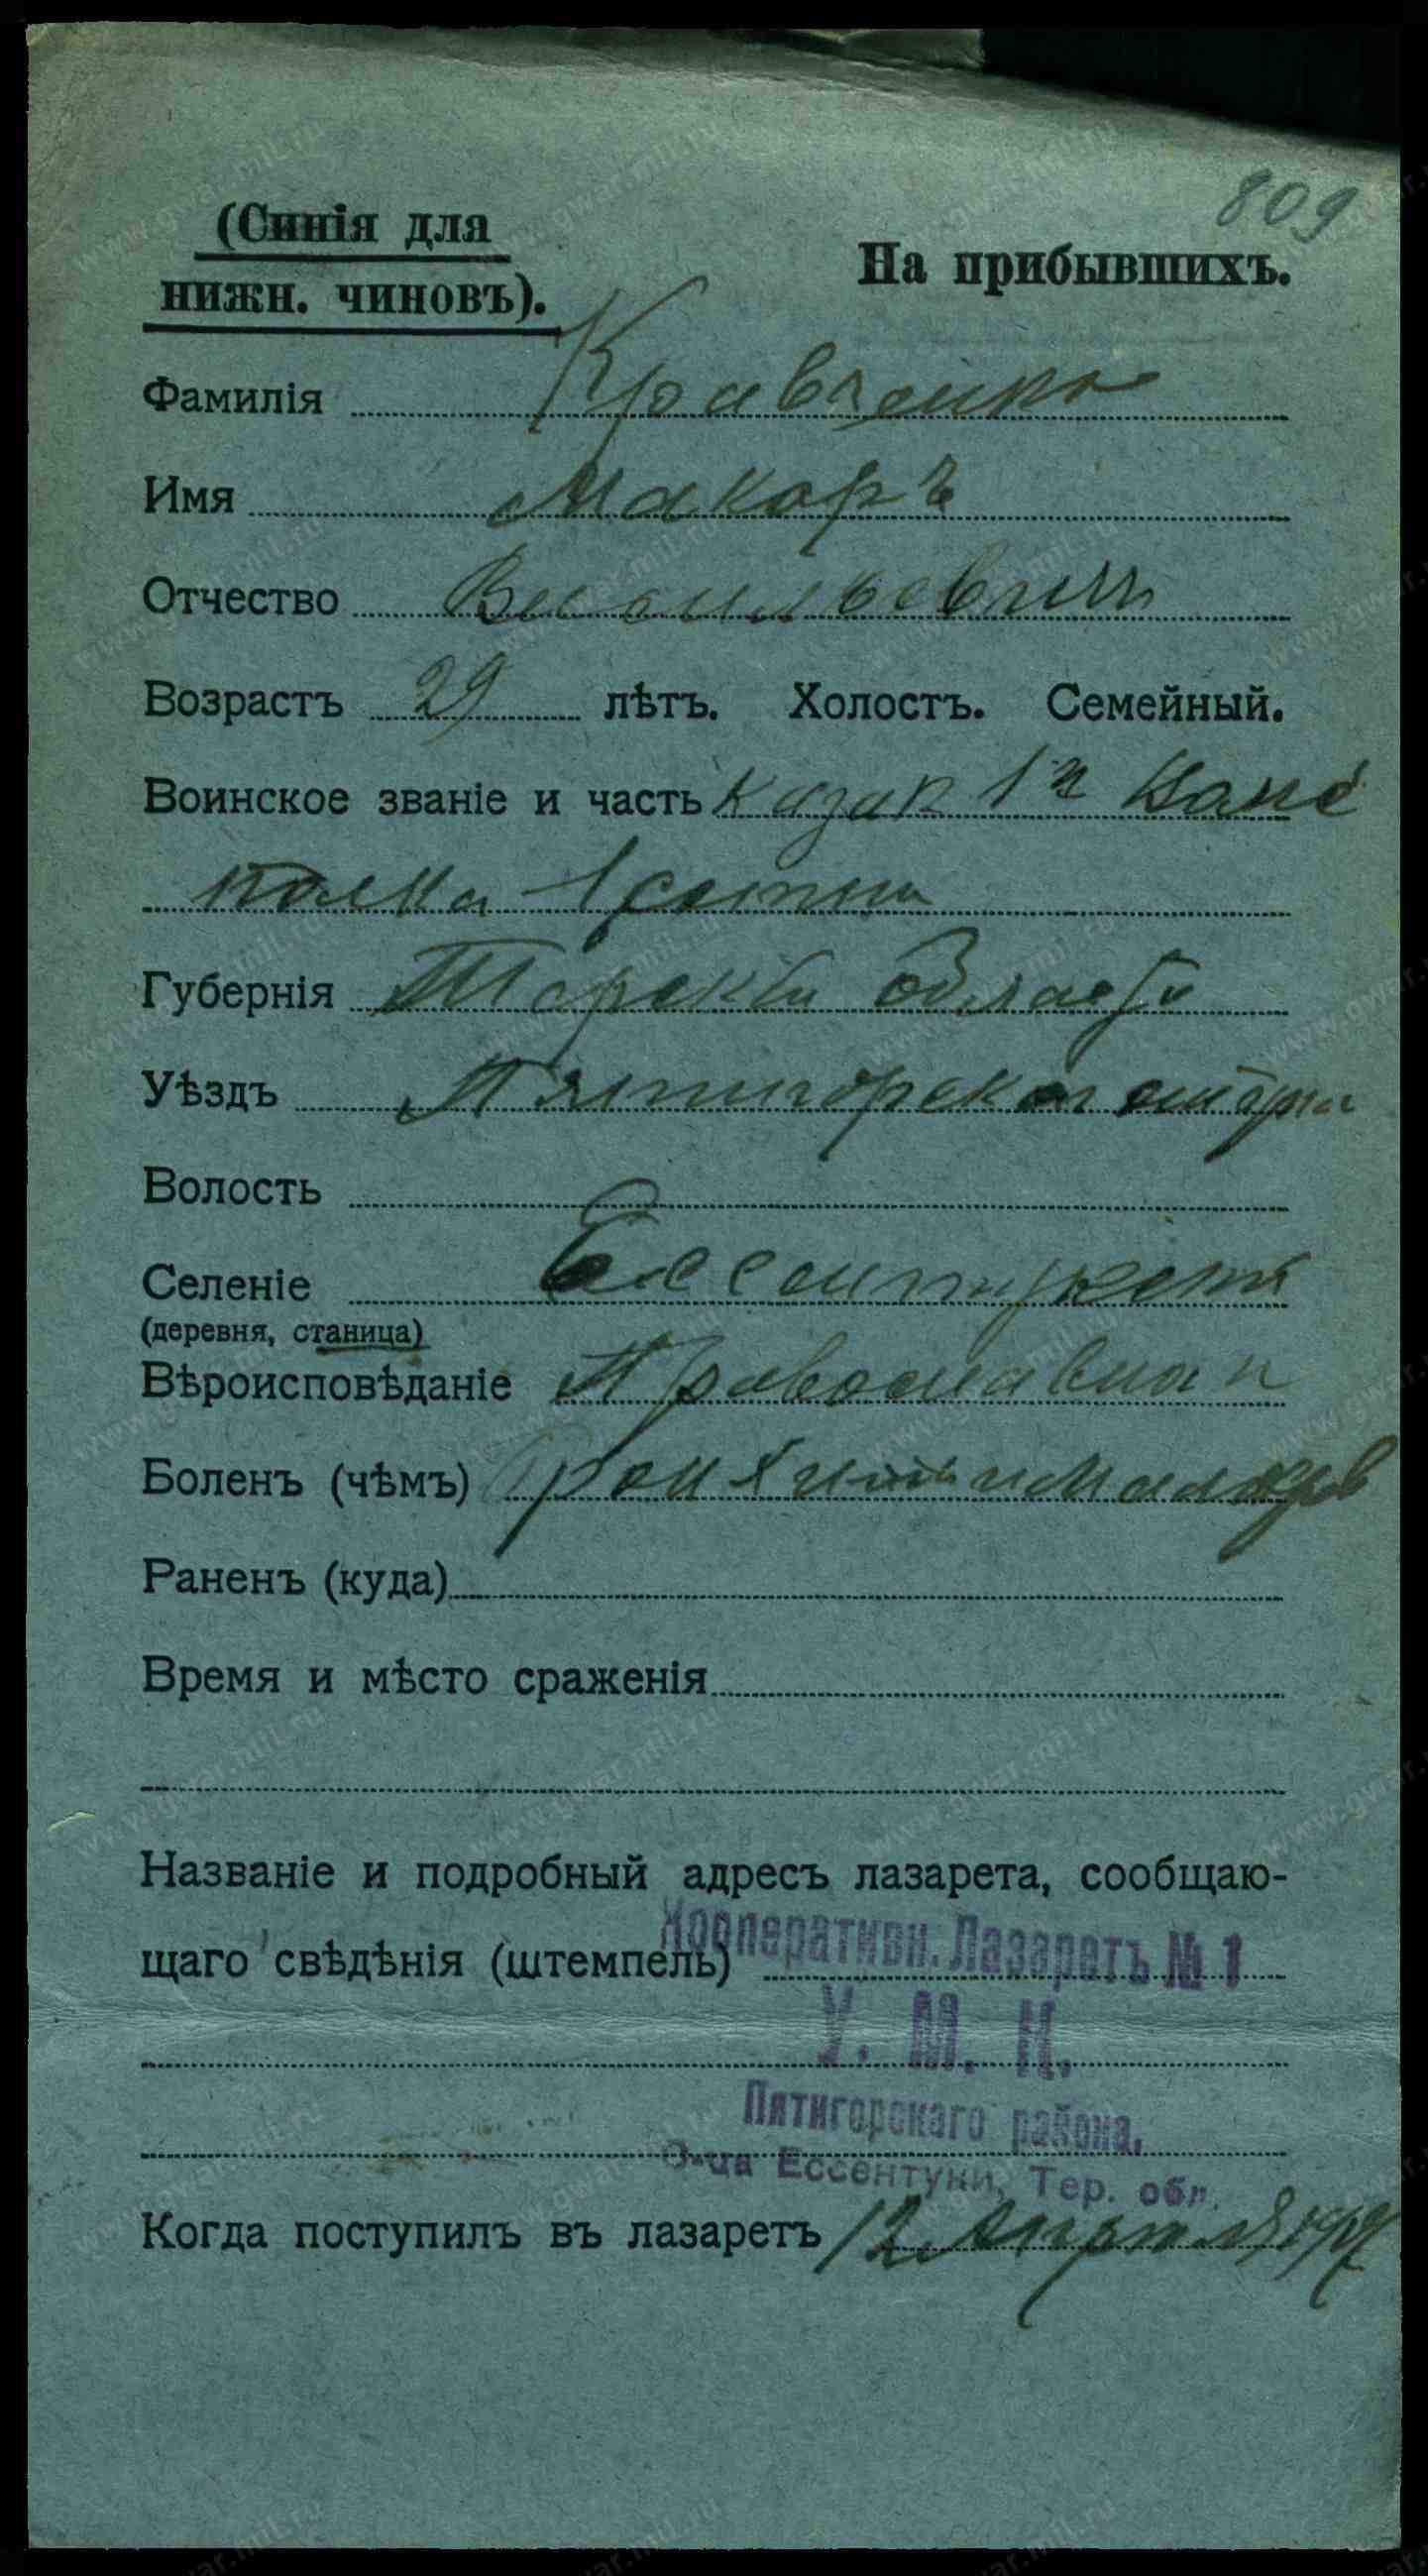 809
(Синія для
нижн. чиновъ).
На прибывшихъ.
Фамилія Кравченко
Имя Макаръ
Отчество Васильевичъ
Возрастъ 29 лѣтъ. Холостъ. Семейный.
Воинское званіе и часть казак 1й
полка 1 сотни
Губернія Терской области
Уѣздъ Пятигорскаго
Волость
Селеніе Ессентукской
(деревня, станица)
Вѣроисповѣданіе
Боленъ (чѣмъ)
Раненъ (куда)
Время и мѣсто сраженія
Названіе и подробный адресъ лазарета, сообщаю-
щаго свѣдѣнія (штемпель) Кооперативн. Лазаретъ № 1
У. М. К.
Пятигорскаго района.
С-ца Ессентуки, Тер. обл.
Когда поступилъ въ лазаретъ 12 Апреля 1917